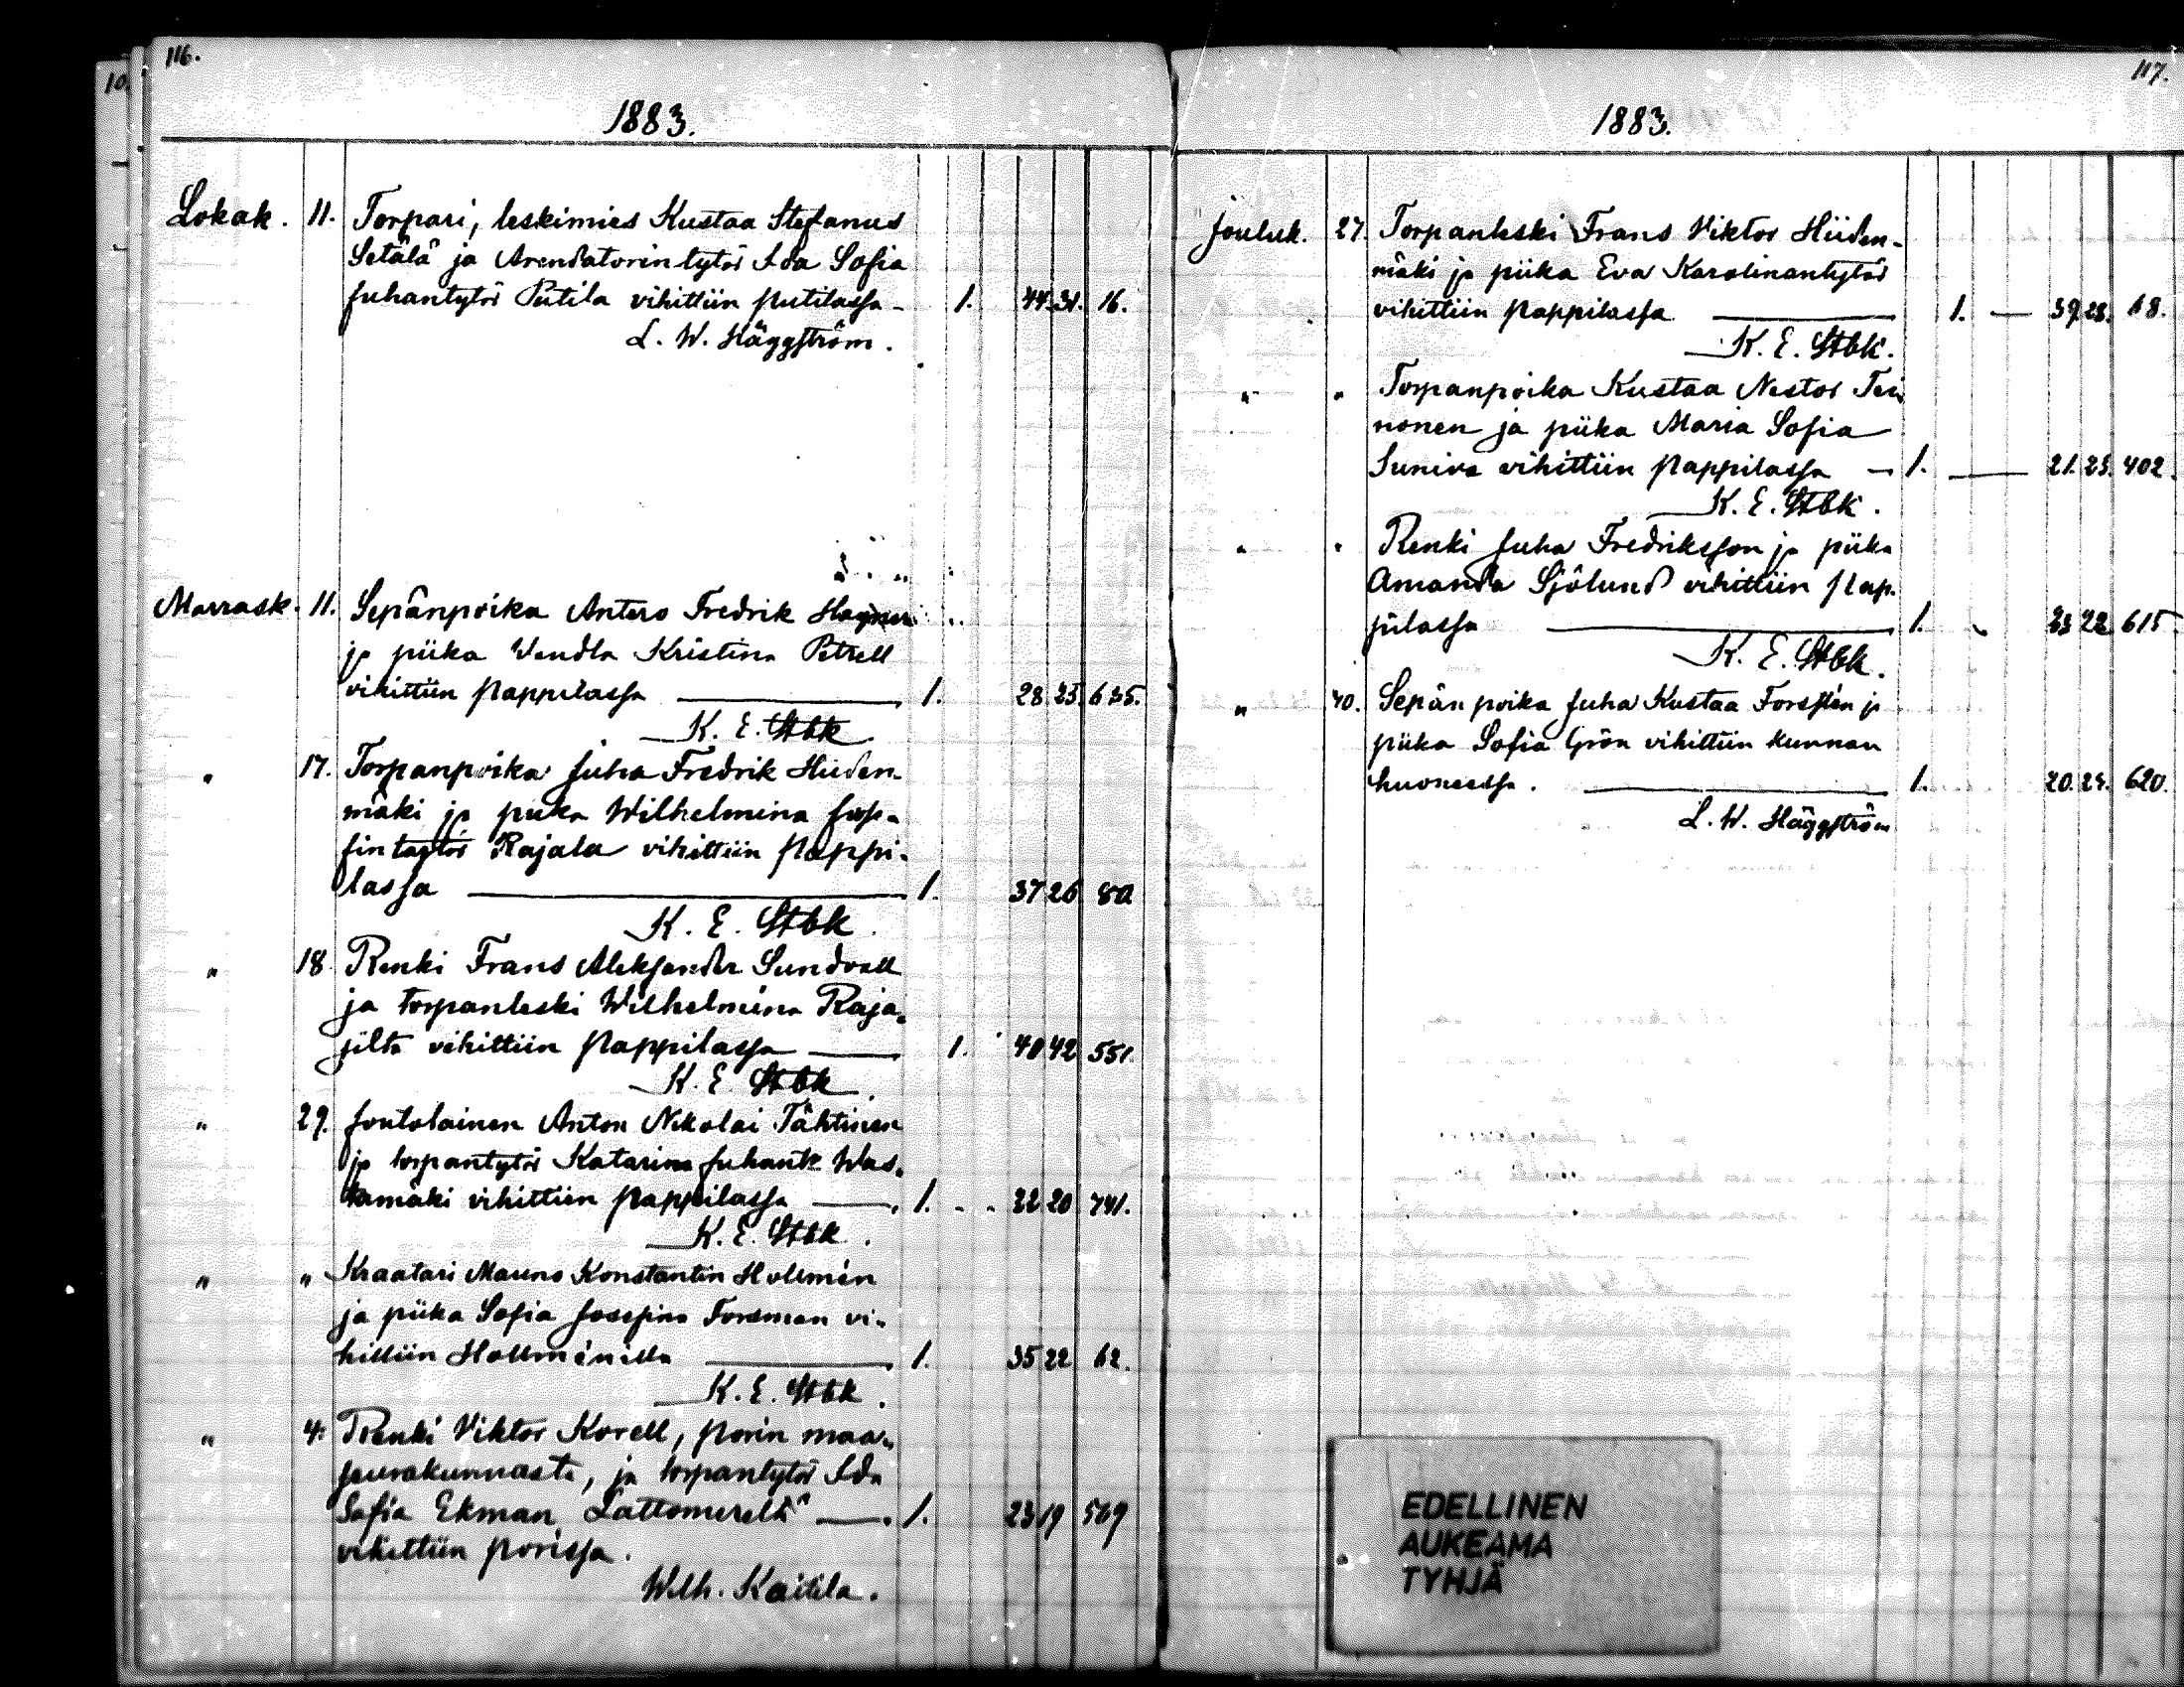 116.
10.
1883.
Lokak. 11. Torpari, leskimies Kustaa Stefanus
Setälä ja Arendatorin tytör Ida Sofia
Juhantytör Putila vihittiin Putilassa - 1. 44. 31. 16.
L. W. Häggström.
Marrask. 11. Sepänpoika Antero Fredrik
ja piika Vendla Kristina Petrell
vihittiin Pappilassa — 1. 28 25. 635.
K. E. Stbk
" 17. Torpanpoika Juha Fredrik Hiiden-
mäki ja piika Wilhelmina
tytör Rajala vihittiin Pappi-
lassa — 1. 37 26 80
K. E. Stbk.
" 18 Renki Frans Aleksander Sundvall
ja torpanleski Wilhelmina Raja-
vihittiin Pappilassa — 1. 40 42 551.
K. E. Stbk.
" 29. Joutolainen Anton Nikolai Tähtinen
ja torpantytör Katarina Juhant. Was-
tamäki vihittiin Pappilassa — 1. 22 20 741.
K. E. Stbk.
" " Kraatari Mauno Konstantin Hollmén
ja piika Sofia Josefina Forsman vi-
hittiin Hollménilla — 1. 35 22 62.
K. E. Stbk.
" 4: Renki Viktor Korell, Porin maa-
seurakunnasta, ja torpantytör Ida
Sofia Ekman Lattomereltä — 1. 23 19 569
vihittiin Porissa.
Wilh. Kaitila.
117.
1883.
Jouluk. 27. Torpanleski Frans Viktor Hiiden-
mäki ja piika Eva Karolinantytär
vihittiin Pappilassa — 1. — 39 28. 18.
K. E. Stbk.
" " Torpanpoika Kustaa Nestor
nonen ja piika Maria Sofia
vihittiin Pappilassa — 1. — 21. 23. 402.
K. E. Stbk.
" " Renki Juha Fredriksson ja piika
Amanda Sjölund vihittiin Pap-
pilassa — 1. 23 22 615
K. E. Stbk.
" 30. Sepän poika Juha Kustaa Forsstén ja
piika Sofia Grön vihittiin kunnan
huoneessa. — 1. 20. 24. 620.
L. W. Häggström
EDELLINEN
AUKEAMA
TYHJÄ